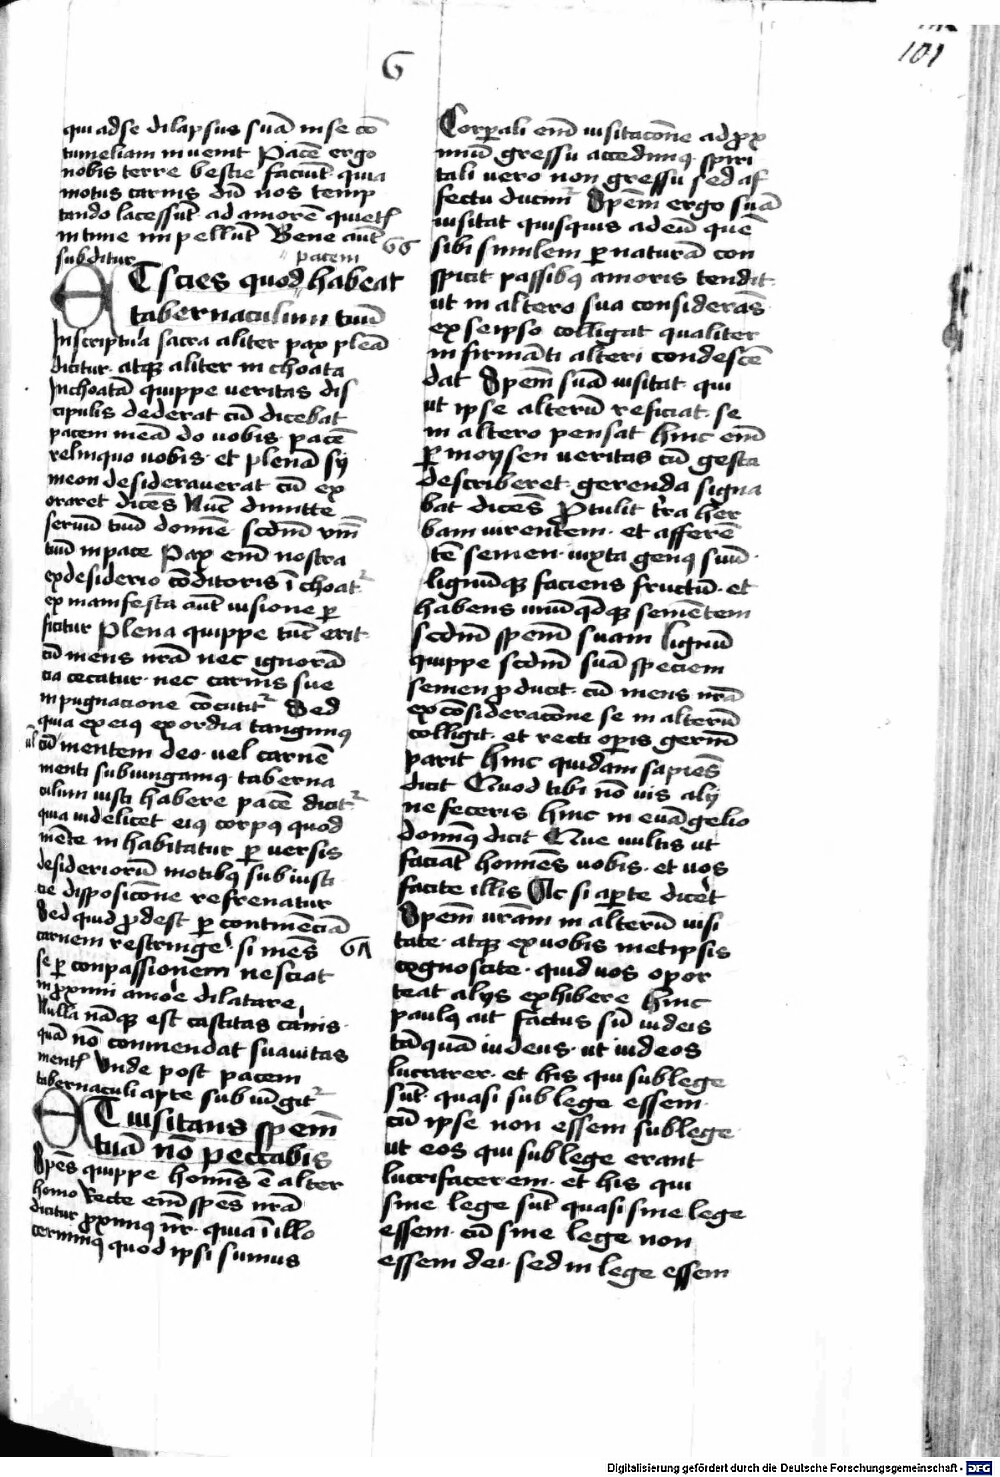 G
101
qui ad se dilapsus suā in se cō
tumeliam invenit Pacē ergo
nobis terre bestie faciūt quia
motus carnis dū nos temp
tando lacessūt ad amorē quietꝭ
intime impellūt Bene aut̄
subditur
GG
pacem
ET scies quod habeat
tabernaculum tuū
In scriptura sacra aliter pax plēa
dicitur. atqꝫ aliter inchoata
Inchoatā quippe veritas dis
cipulis dederat cū dicebat
pacem meā do vobis. pacē
relinquo vobis. et plenā sy
meon desideraverat cū ex
oraret dicēs Nūc dimitte
servū tuū domīe. scdm̄ vm̄
tuū in pace Pax em̄ nostra
ex desiderio cōditoris īchoat᷑.
ex manifesta aut̄ visione ꝑ
ficitur Plena quippe tūc erit.
cū mens nr̄a nec ignorā
tia cecatur. nec carnis sue
inpugnacione cōcutit᷑ Sed
quia ex eiꝰ exordia tangimꝰ
ul cū mentem deo. vel carnē
menti subiungamꝰ. taberna
culum iusti habere pacē dicit᷑
quia videlicet eiꝰ corpꝰ quod
mēte inhabitatur ꝑversis
desideriorū motibꝰ sub iusti
cie disposicōne refrenatur
Sed quid ꝓdest ꝑ continēciā
carnem restringe͛ si mēs
se ꝑ conpassionem nesciat
in ꝓximi amor̄e dilatare
Nulla nāqꝫ est castitas carnis.
quā nō conmendat suavitas
mentꝭ Unde post pacem
tabernaculi apte subiūgit᷑
ET visitans speciem̄
tuā nō peccabis
Spēs quippe homīs ē alter
homo Recte em̄ spēs nr̄a
dicitur ꝓximꝰ nr̄. quia ī illo
cernimꝰ quod ipsi sumus
Corꝑali em̄ visitacōne ad ꝓx
imū gressu accedimꝰ. spiri
tali vero non gressu sed af
fectu ducim᷑ Spēm ergo suā
visitat quisquis ad eū quē
sibi similem ꝑ naturā con
spicit passibꝰ amoris tendit.
ut in altero sua consideras̄
ex seipso colligat qualiter
infirmāti alteri condescē
dat Spēm suā visitat. qui
ut ipse alterū reficiat. se
in altero pensat hinc em̄
ꝑ moysen veritas cū gesta
describeret. gerenda signa
bat dicēs Ptulit tr̄a her
bam virentem. et afferē
tē semen. iuxta genꝰ suū.
lignūqꝫ faciens fructū. et
habens unūqdqꝫ semētem
scdm̄ spēm suam lignū
quippe scdm̄ suā speciem
semen ꝓducit. cū mens nr̄a
ex cōsideracōne se in alterū
colligit. et recti oꝑis germē
parit hinc quidam sapiēs
dicit Quod tibi nō vis alij
ne feceris hinc in evāgelio
domīꝰ dicit Que vultis ut
faciāt homīes vobis. et vos
facite illis Ac si aꝑte dicēt
Spēm vr̄am in alterū visi
tate. atqꝫ ex vobis metipsis
cognoscite. quid vos opor
teat alijs exhibere hinc
paulꝰ ait Factus sū iudeis
tāquā iudeus. ut iudeos
lucrarer. et his qui sub lege
sūt. quasi sub lege essem.
cū ipse non essem sub lege
ut eos qui sub lege erant
lucrifacerem. et his qui
sine lege sūt quasi sine lege
essem. cū sine lege non
essem dei. sed in lege essem
GN
Digitalisierung gefördert durch die Deutsche Forschungsgemeinschaft - DFG